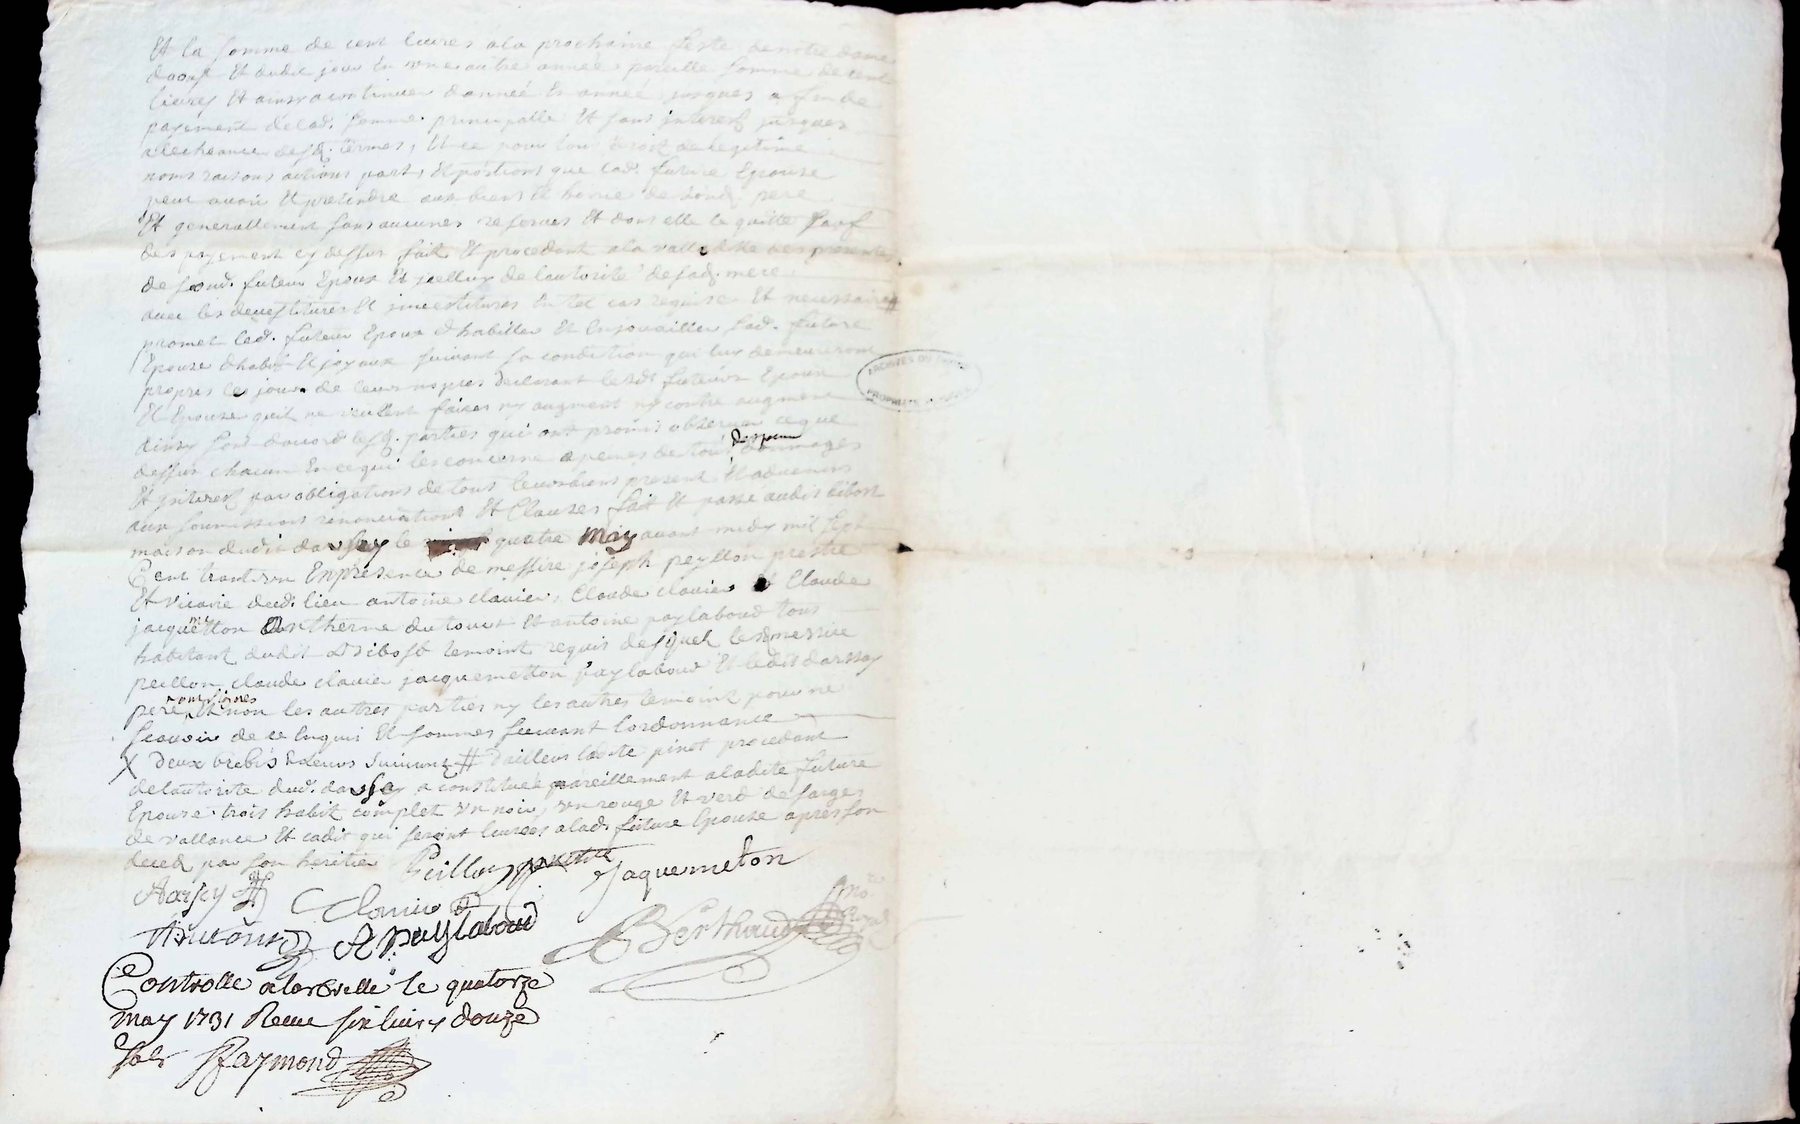 Et la somme de cent livres a la prochaine feste de notre dame
daoust Et dudit jour En une autre année pareille somme de cent
livres Et ainsy a continuer dannée En année jusques a fin de
payement de lad. somme principalle Et sans interest jusques
a lecheance desd. termes, Et ce pour tout droit de legitime
noms raisons actions parts Et portions que lad. future Epouse
peut avoir Et pretendre aux biens Et hoirie de sond. pere
Et generallement sans aucunes reserves Et dont elle le quitte sauf
des payement cy dessus fait Et procedant a la vallidité des presentes
de sond. futeur Epoux Et icelluy de lautorité de sad. mere
avec les devestitures Et investitures En tel cas requise Et necessaire #
promet led. futeur Epoux dhabiller Et Enjouailler sad. future
Epouse dhabit Et joyaux suivant sa condition qui luy demeureront
propres les jour de leurs nopces declarant lesd. futeurs Epoux
Et Epouse quil ne veullent faire ny augment ny contre augment
ainsy sont daccord lesd. parties qui ont promis observer ce que
despens
dessus chacun En ce qui les concerne a peines de tous dommages
Et interest par obligations de tous leurs biens present Et advenirs
aux soumissions renonciations Et Clauses fait Et passé audit Ribost
maison dudit darssay le quatre May avant midy mil sept
Cent trant un En presence de messire joseph peyllon prestre
Et vicaire dud. lieu antoine clavier, Claude clavier Et Claude
jacquemetton Estherme dutour Et antoine paylaboud tous
habitant dudit Ribost temoint requis desquel led. messire
peillon, claude clavier jacquemetton paylaboud Et ledit darssay
ont signes
pere Et non les autres parties ny les autres temoint pour ne
scavoir de ce Enquis Et sommes suivant lordonnance
X deux brebis # dailleur ladite pinot procedant
de lautorite dud. darssay a constitué pareillement a ladite future
Epouse trois habit complet un noir, un rouge Et verd de sarges
de vallance Et cadit qui seront livres a lad. future Epouse apres son
deced par son heritier Peillon prestre Jaquemeton
Darsey Clavier
A Paylaboud Berthaud
Controlle a la le quatorze
may 1731 Receu six livres douze
sols Raymond
ARCHIVES DU
PROPRIÉTÉ